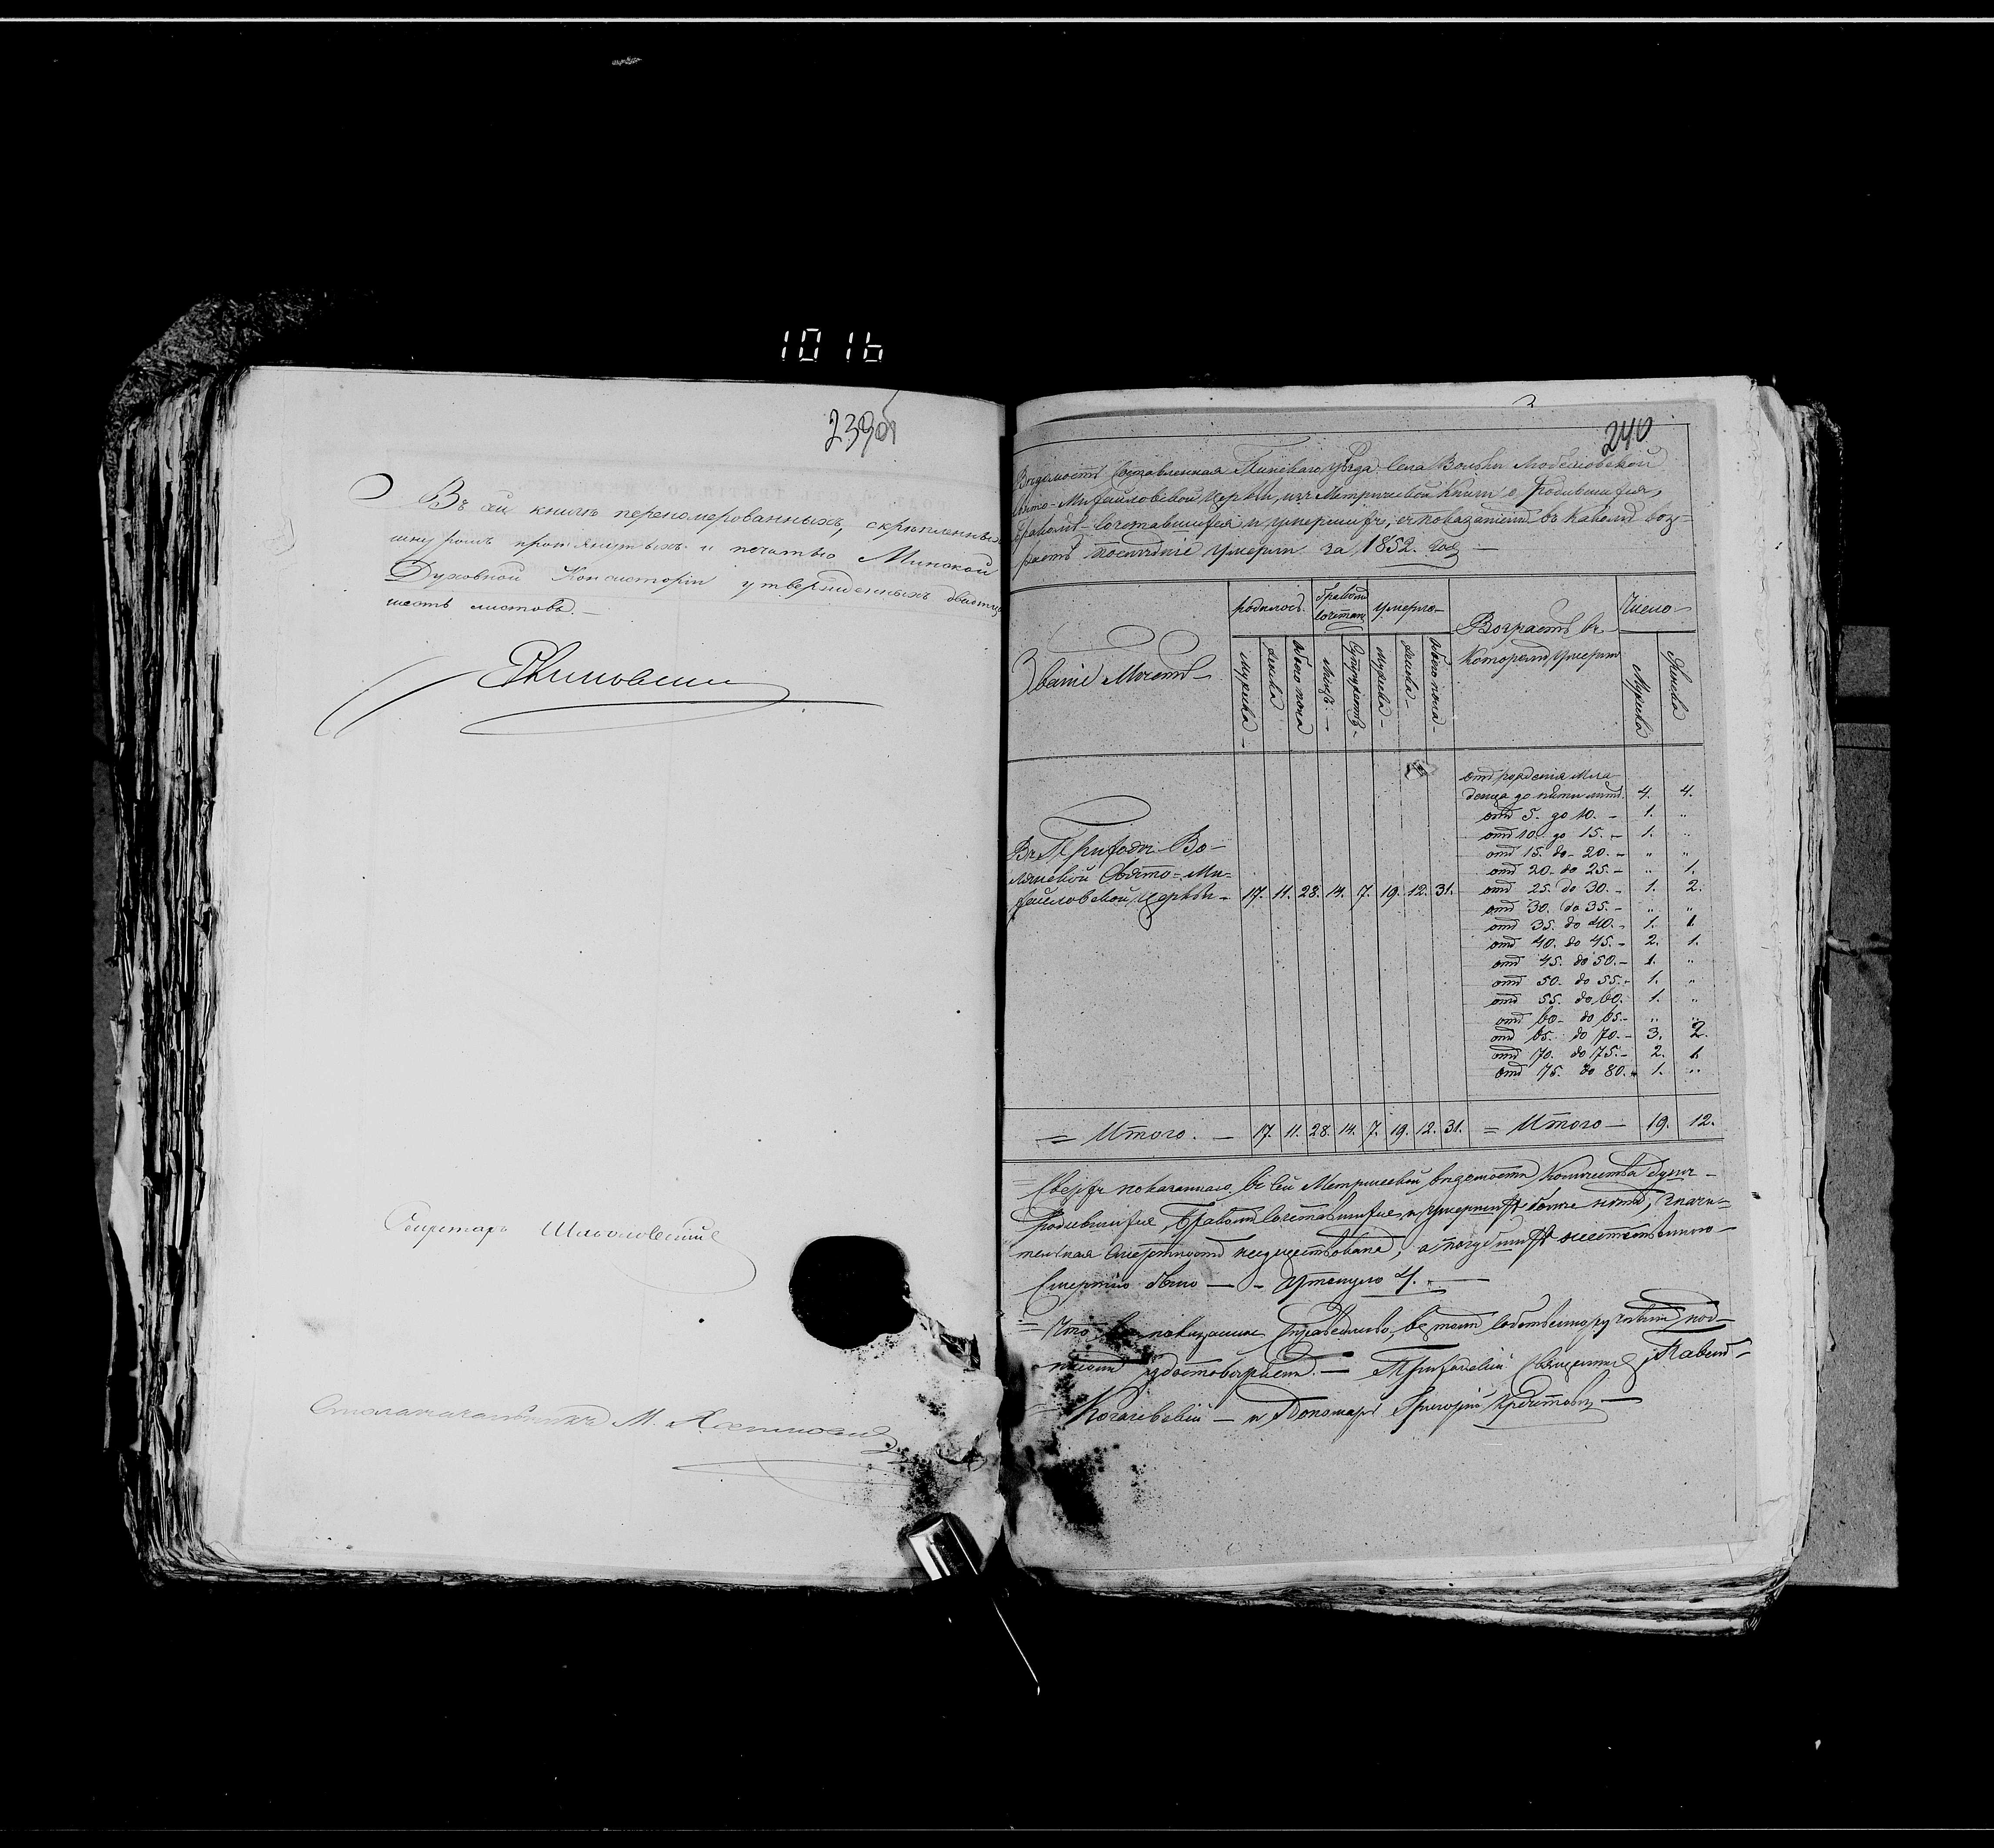 1016
239об
Въ сей книгѣ переномерованныхъ, скрѣпленныхъ
шнуромъ протянутыхъ и печатью Минской
Духовной Консисторіи утвержденныхъ двѣсти
шесть листовъ. —
Секретарь
Столоначальникъ М.
240
Вѣдомость Составленная Пинскаго уѣзда Села Вольки Любешовской
Свято-Михайловской Церкви, изъ Метрической Книги о родившихся,
бракомъ-сочетавшихся и умершихъ, съ показаніемъ въ какомъ воз-
растѣ послѣдніе умерли за 1852. годъ —
Званіе Мѣстъ
родилось
бракомъ сочетан.
умерло
Возрастъ въ
которомъ умерли
Число
Мужска
женска
Обоего пола
Супружествъ
Мужска
женска
Обоего пола
Мужска
Женска
отъ рожденія Мла
денца до пяти лѣтъ. 4. 4.
отъ 5. до 10. — 1. "
отъ 10. до 15. — 1. "
отъ 15. до 20. — " "
отъ 20. до 25. — " 1.
Въ Приходѣ Во-
лянской Свято-Ми-
хайловской Церкви — 17. 11. 28. 14. 7. 19. 12. 31. отъ 25. до 30. — 1. 2.
отъ 30. до 35. — " "
отъ 35. до 40. — 1. 1.
отъ 40. до 45. — 2. 1.
отъ 45. до 50. — 1. "
отъ 50. до 55. — 1. "
отъ 55. до 60. 1. "
отъ 60. до 65. — " "
отъ 65. до 70. — 3. 2.
отъ 70. до 75. — 2. 1.
отъ 75. до 80. 1. "
= Итого. — 17. 11. 28. 14. 7. 19. 12. 31. = Итого — 19. 12.
Сверхъ показаннаго въ сей Метрической вѣдомости Количества душъ —
родившихся, бракомъ сочетавшихся, и умершихъ болѣе нѣтъ, Значи-
тельная Смертность несуществовала, а погубшихъ
Смертію было — утонуло 4. —
= Что все показанное Справедливо, въ томъ собственноручнымъ под-
писомъ удостовѣряемъ. — Приходскій Священникъ
— и Пономарь Григорій